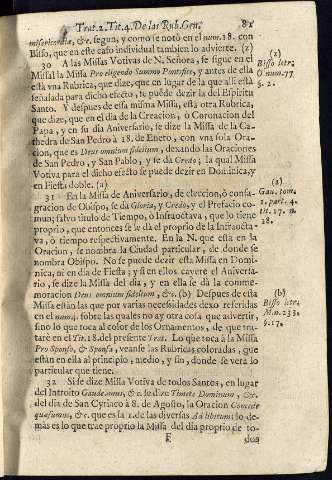 Trat. 2. Tit. 4. De las Rub. Gen. 81
misericordia, &c. segun, y como se notò en el num. 18. con
Bisso, que en este caso individual tambien lo advierte. (z)
30 A las Missas Votivas de N. Señora, se sigue en el
Missal la Missa Pro eligendo Summo Pontifice, y antes de ella
està vna Rubrica, que dize, que en lugar de la que alli està
señalada para dicho efecto, se puede dezir la del Espiritu
Santo. Y despues de essa misma Missa, està otra Rubrica,
que dize, que en el dia de la Creacion, ò Coronacion del
Papa, y en su dia Aniversario, se dize la Missa de la Ca-
thedra de San Pedro à 18. de Enero, con vna sola Ora-
cion, que es Deus omnium fidelium, dexando las Oraciones
de San Pedro, y San Pablo, y se dà Credo; la qual Missa
Votiva para el dicho efecto se puede dezir en Dominica, y
en Fiesta doble. (a)
31 En la Missa de Aniversario, de eleccion, ò consa-
gracion de Obispo, se dà Gloria, y Credo, y el Prefacio co-
mun; salvo titulo de Tiempo, ò Infraoctava, que lo tiene
proprio, que entonces se le dà el proprio de la Infraocta-
va, ò tiempo respectivamente. En la N. que està en la
Oracion, se nombra la Ciudad particular, de donde se
nombra Obispo. No se puede dezir esta Missa en Domi-
nica, ni en dia de Fiesta; y si en ellos cayere el Aniversa-
rio, se dize la Missa del dia, y en ella se dà la comme-
moracion Deus omnium fidelium, &c. (b) Despues de esta
Missa estàn las que por varias necessidades dexo referidas
en el num 4. sobre las quales no ay otra cosa que advertir,
sino lo que toca al color de los Ornamentos, de que tra-
tarè en el Tit. 18. del presente Trat. Lo que toca à la Missa
Pro Sponso, & Sponsa, veanse las Rubricas coloradas, que
estàn en ella al principio, medio, y fin, donde se verà lo
particular que tiene.
32 Si se dize Missa Votiva de todos Santos, en lugar
del Introito Gaudeamus, &c. se dize Timete Dominum, &c.
del dia de San Cyriaco à 8. de Agosto, la Oracion Concede
quæsumus, &c. que es la 1. de las diversas Ad libitum; lo de-
mas es lo que trae proprio la Missa del dia proprio de to-
F dos
(z)
Bisso letr.
O num. 77.
§. 2.
(a)
Gav. tom.
1. part. 4.
tit. 17. n.
18.
(b)
Bisso letr.
M. n. 233.
§. 17.